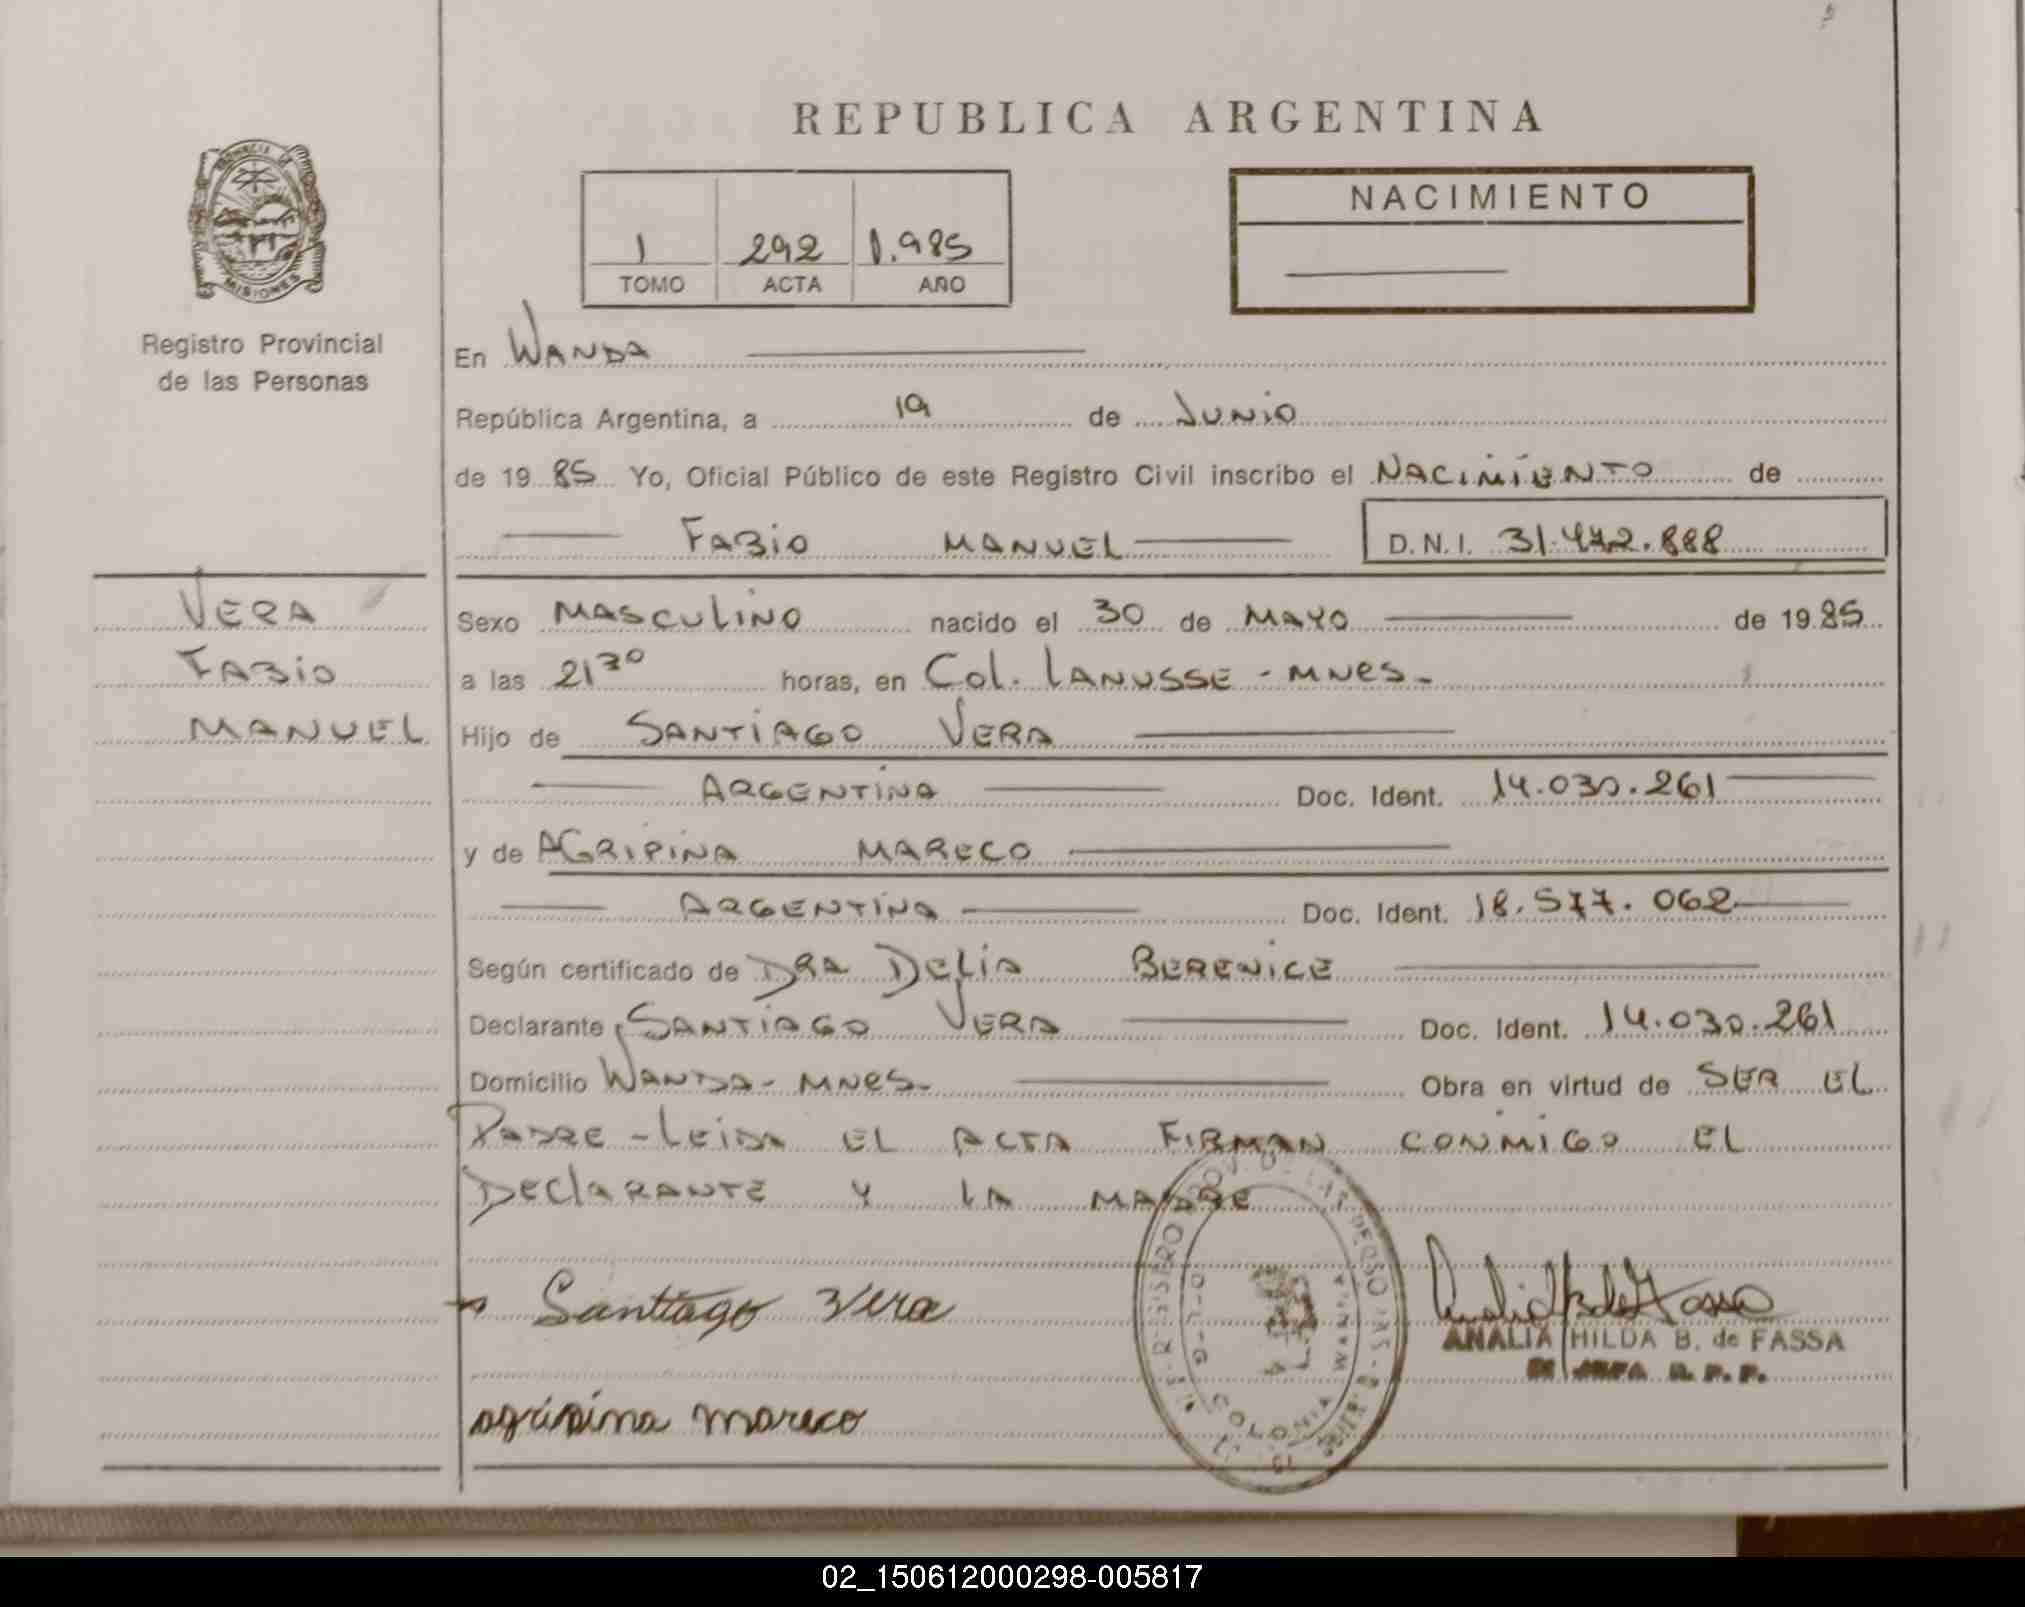 REPUBLICA ARGENTINA
PROVINCIA DE
MISIONES
Registro Provincial
de las Personas
1 292 1.985
TOMO ACTA AÑO
NACIMIENTO
En WANDA
República Argentina, a 19 de JUNIO
de 19 85 Yo, Oficial Público de este Registro Civil inscribo el NACIMIENTO de
FABIO MANUEL D.N.I. 31.442.888
VERA
FABIO
MANUEL
Sexo MASCULINO nacido el 30 de MAYO de 19 85
a las 21 30 horas, en Col. LANUSSE - MNES -
Hijo de SANTIAGO VERA
ARGENTINA Doc. Ident. 14.030.261
y de AGRIPINA MARECO
ARGENTINA Doc. Ident. 18.577.062
Según certificado de DRA DELIA BERENICE
Declarante SANTIAGO VERA Doc. Ident. 14.030.261
Domicilio WANDA - MNES - Obra en virtud de SER EL
PADRE - LEIDA EL ACTA FIRMAN CONMIGO EL
DECLARANTE Y LA MADRE
Santiago Vera
ANALIA HILDA B. de FASSA
agripina mareco
COLONIA WANDA
02_150612000298-005817